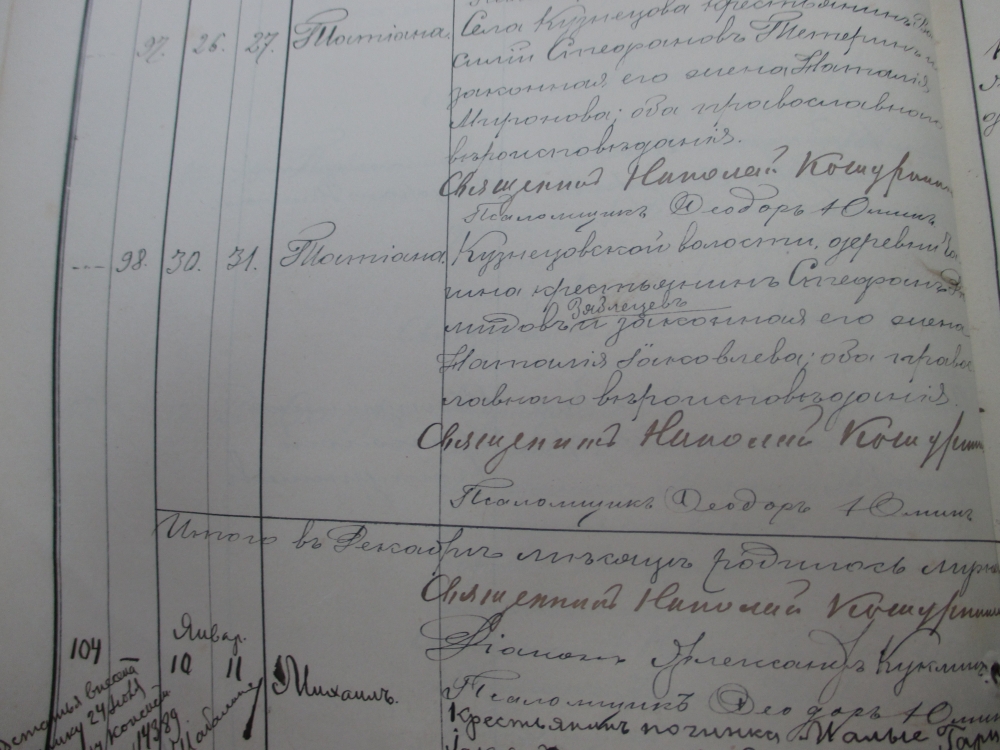 97. 26. 27. Татіана. Села Кузнецова крестьянинъ
силій Стефановъ Тетеринъ и
законная его жена Наталія
Миронова; оба православнаго
вѣроисповѣданія.
Священникъ Николай Кошурни
Псаломщикъ Ѳеодоръ Юминъ
98. 30. 31. Татіана. Кузнецовской волости, деревни
гина крестьянинъ Стефанъ
Зяблецевъ
мидовъ и законная его жена
Наталія Іаковлева; оба право
славнаго вѣроисповѣданія.
Священникъ Николай Кошурни
Псаломщикъ Ѳеодоръ Юминъ
Итого въ Декабрѣ мѣсяцѣ родилось муж
Священникъ Николай Кошурни
Діаконъ Александръ Куклинъ.
Псаломщикъ Ѳеодоръ Юмин
104 Январ.
10 11 Михаилъ. Крестьянинъ починка Малые